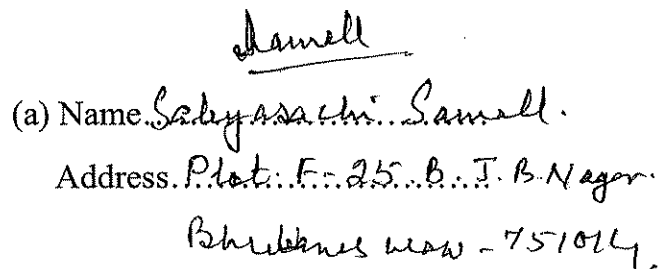 Samell
(a) Name. Sabyasachi Samell.
Address. Plot. F-25 B. J. B. Nagar.
Bhubaneswar - 751014,